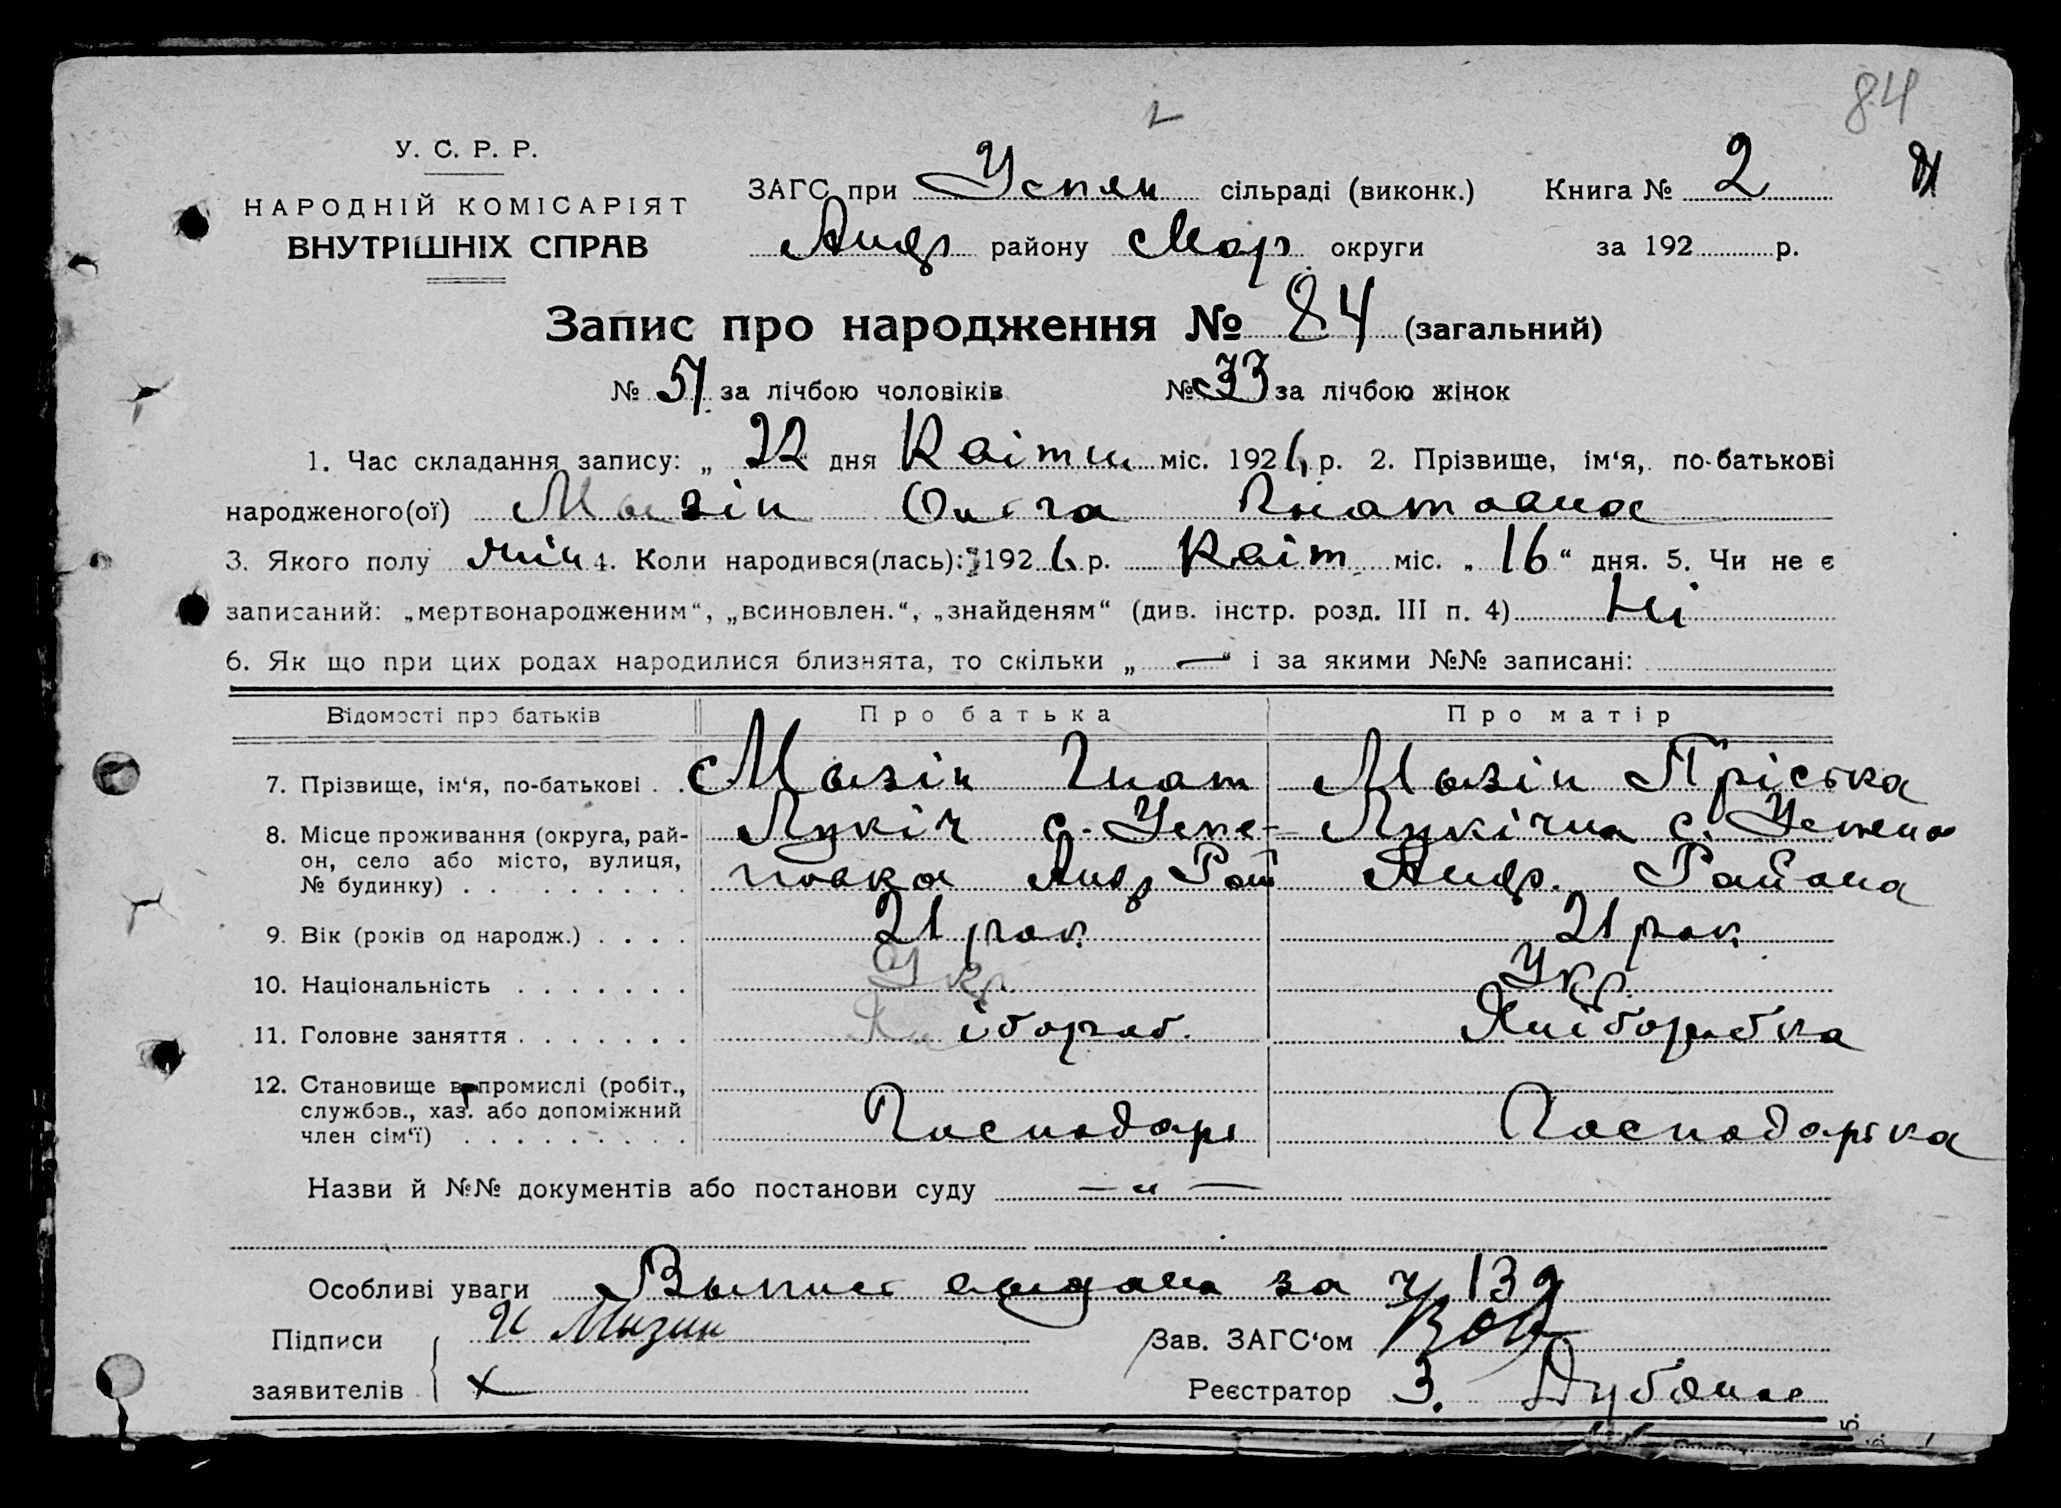 84
У. С. Р. Р.
НАРОДНІЙ КОМІСАРІЯТ
ВНУТРІШНІХ СПРАВ
ЗАГС при Успен сільраді (виконк.) Книга № 2
Андр району Мар округи за 192 р.
Запис про народження № 84 (загальний)
№ 51 за лічбою чоловіків № 33 за лічбою жінок
1. Час складання запису: „ 22 дня Квітни міс. 1926 р. 2. Прізвище, ім‘я, по-батькові
народженого(ої) Мызін Ольга Гнатовна
3. Якого полу жін 4. Коли народився(лась): 1926 р. Квіт міс. „ 16 “ дня. 5. Чи не є
записаний: „мертвонародженим“, „всиновлен.“, „знайденям“ (див. інстр. розд. III п. 4) Ні
6. Як що при цих родах народилися близнята, то скільки „ — “ і за якими №№ записані:
Відомості про батьків Про батька Про матір
7. Прізвище, ім‘я, по-батькові . . Мызін Гнат Мызін Пріська
8. Місце проживання (округа, рай- Лукіч с. Успе- Лукічна с. Успено
он, село або місто, вулиця,
№ будинку) . . . . . . . . . новка Андр Рай Андр. Района
9. Вік (років од народж.) . . . . 21 рок 21 рок
10. Національність . . . . . . . Укр. Укр.
11. Головне заняття . . . . . . . Хлібороб. Хліборобка
12. Становище в промислі (робіт.,
службов., хаз. або допоміжний
член сім‘ї) . . . . . . . . . Господарь Господарька
Назви й №№ документів або постанови суду — „ —
Особливі уваги Выпись выдана за № 139
Підписи И Мызин Зав. ЗАГС‘ом
заявителів х Реєстратор З.